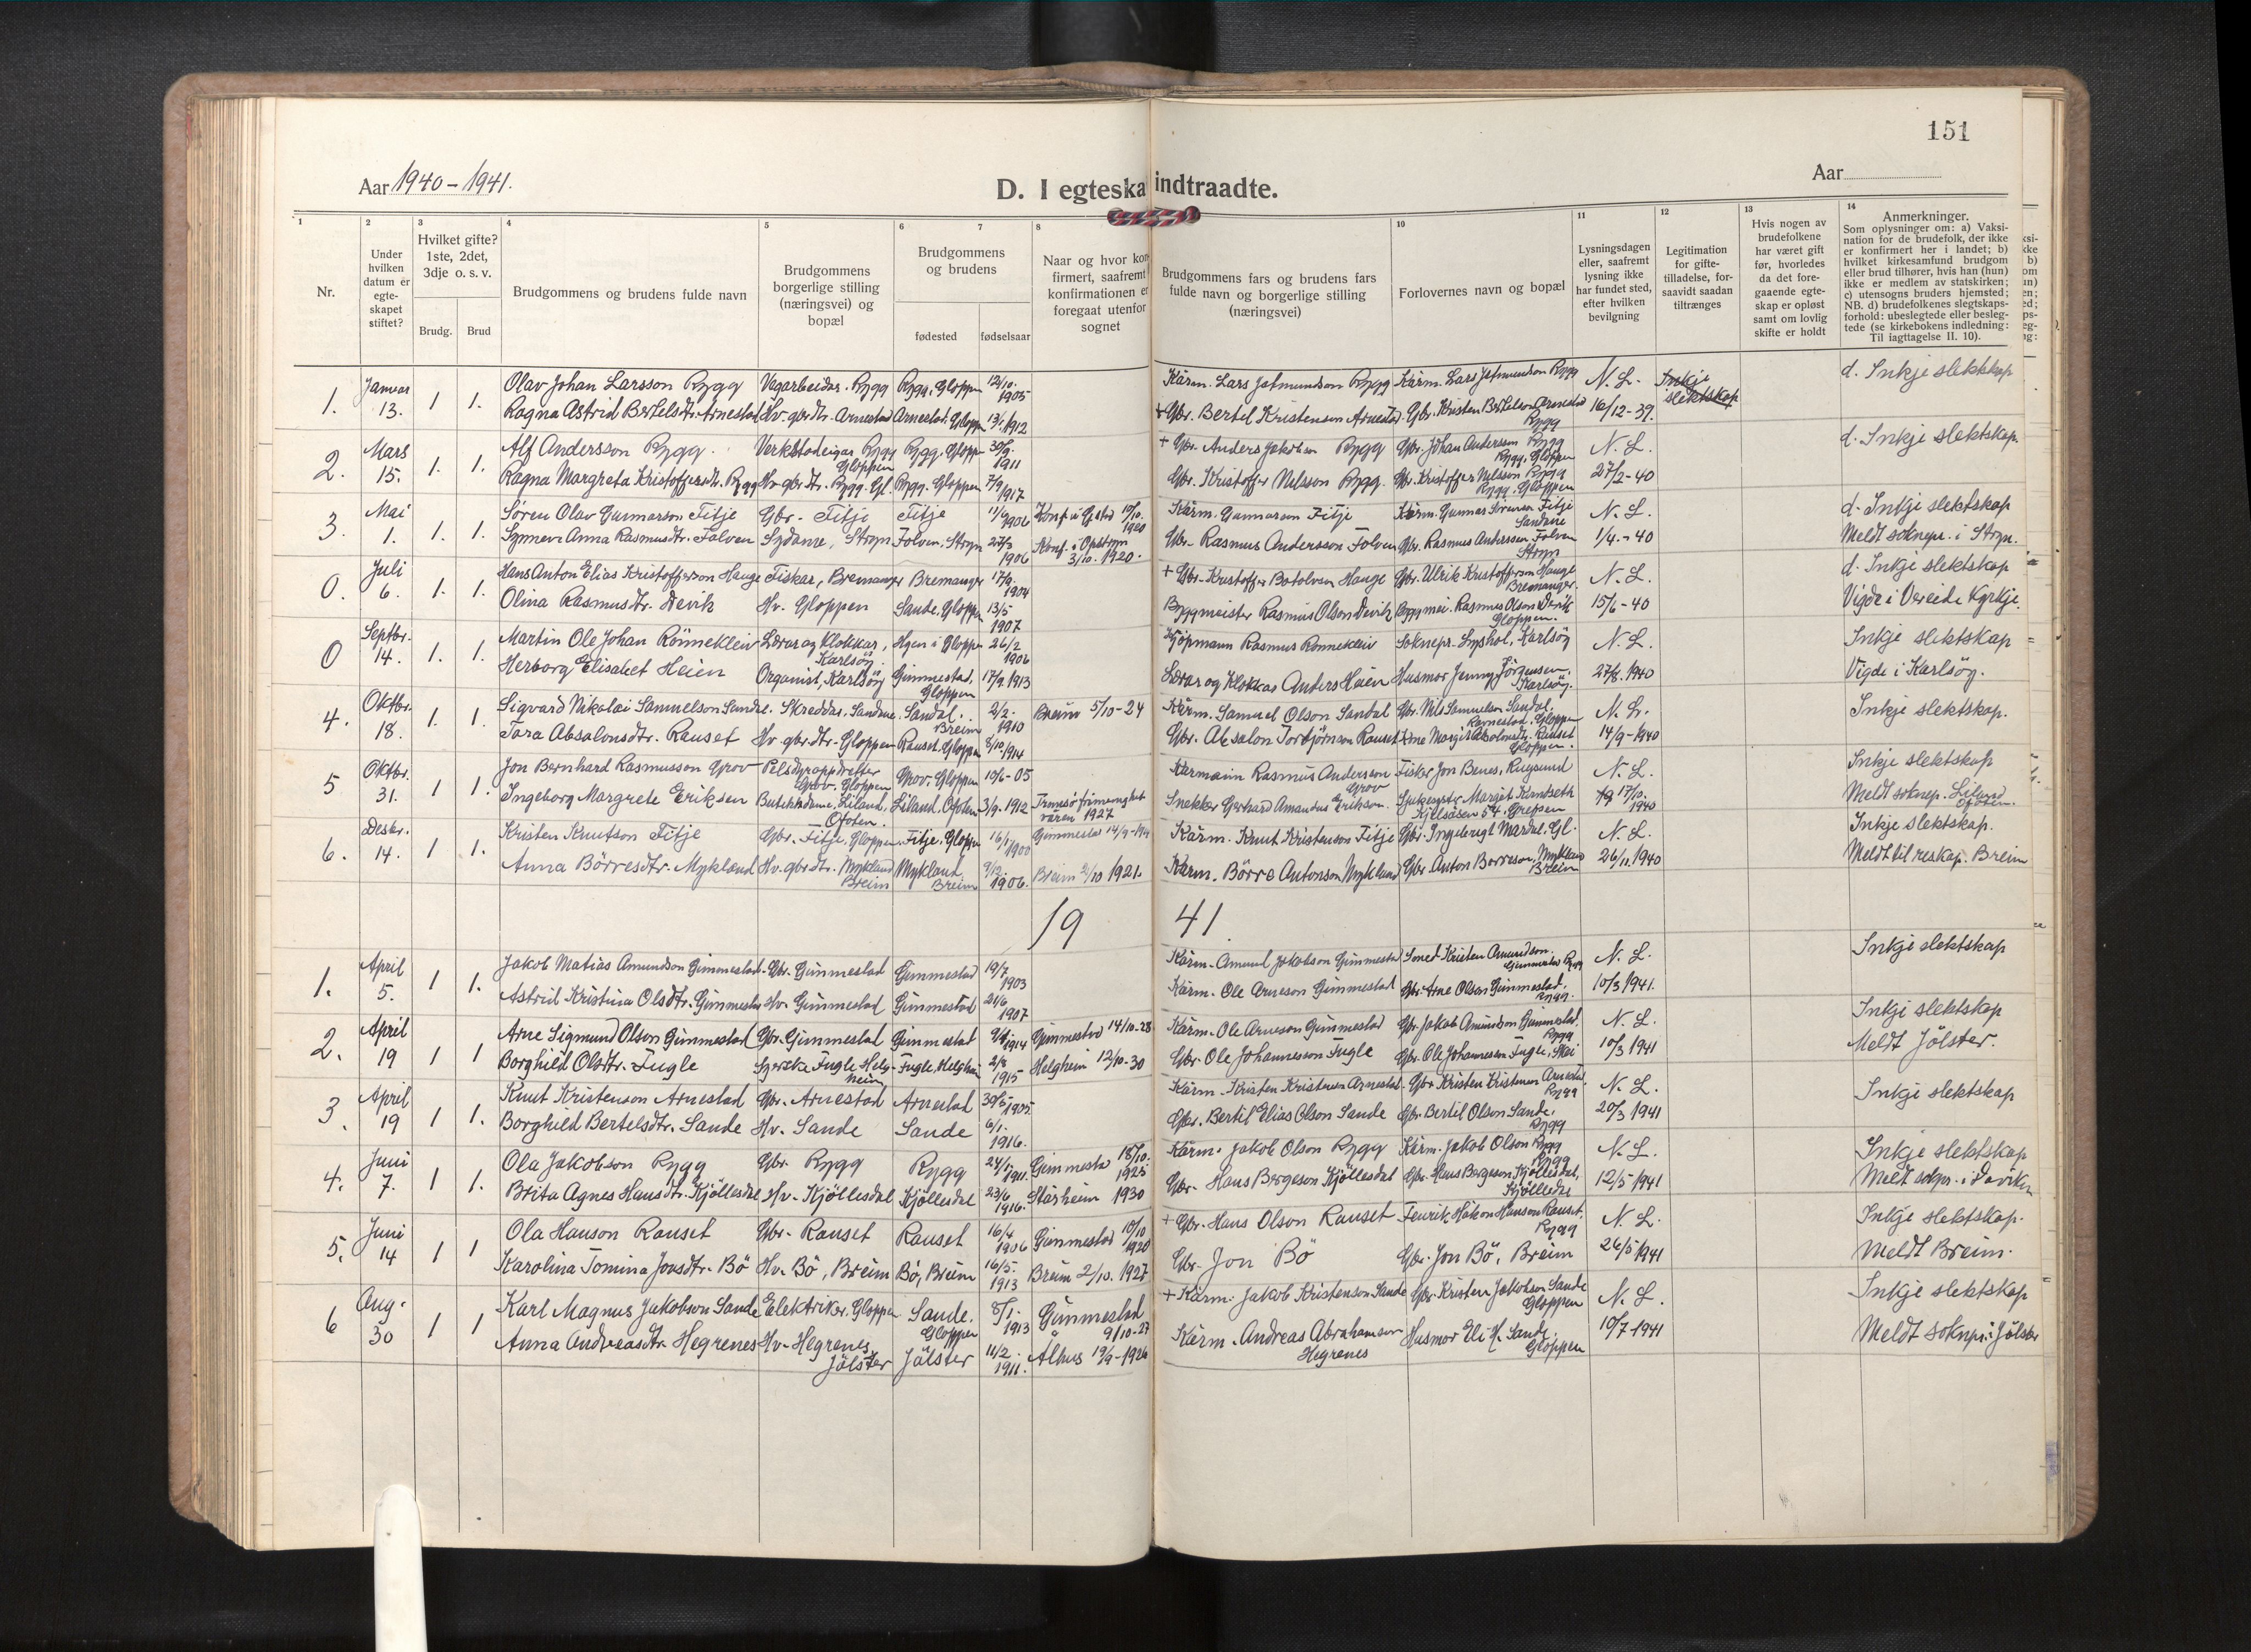 151
Aar 1940 - 1941.
D. I egteska indtraadte.
Aar
1 2 3 4 5 6 7 8 10 11 12 13 14
Nr.
Under hvilken datum er egte-skapet stiftet?
Hvilket gifte? 1ste, 2det, 3dje o. s. v.
Brudg. Brud
Brudgommens og brudens fulde navn
Brudgommens borgerlige stilling (næringsvei) og bopæl
Brudgommens og brudens
fødested fødselsaar
Naar og hvor kon firmert, saafremt konfirmationen er foregaat utenfor sognet
Brudgommens fars og brudens fars fulde navn og borgerlige stilling (næringsvei)
Forlovernes navn og bopæl
Lysningsdagen eller, saafremt lysning ikke har fundet sted, efter hvilken bevilgning
Legitimation for gifte-tilladelse, for-saavidt saadan tiltrænges
Hvis nogen av brudefolkene har været gift før, hvorledes da det fore-gaaende egte-skap er opløst samt om lovlig skifte er holdt
Anmerkninger.
Som oplysninger om: a) Vaksi-nation for de brudefolk, der ikke er konfirmert her i landet; b) hvilket kirkesamfund brudgom eller brud tilhører, hvis han (hun) ikke er medlem av statskirken; c) utensogns bruders hjemsted; NB. d) brudefolkenes slegtskaps-forhold: ubeslegtede eller besleg-tede (se kirkebokens indledning: Til iagttagelse II. 10).
1. Januar 13. 1 1. Olav Johan Larsson Rygg Vegarbeidar. Rygg Rygg, Gloppen 12/10. 1905 Kårm. Lars Jetmundson Rygg Kårm. Lars Jetmundson Rygg N. L. Inkje slektskap d. Inkje slektskap
Ragna Astrid Bertelsdtr. Arnestad Hv. gbr.dtr. Arnestad Arnestad. Gloppen 13/1 1912 + Gbr. Bertel Kristenson Arnestad. Gbr. Kristen Bertelson Arnestad Rygg 16/12 - 39.
2. Mars 15. 1. 1. Alf Andersson Rygg. Verkstadeigar Rygg Gloppen Rygg. Gloppen 30/9. 1911 + Gbr. Anders Jakobson Rygg Gbr. Johan Andersson Rygg Rygg, Gloppen N. L. d. Inkje slektskap.
Ragna Margreta Kristoffersdtr. Rygg Hv. gbr.dtr. Rygg. Gl. Rygg. Gloppen 7/9 1917 Gbr. Kristoffer Nilsson Rygg. Gbr. Kristoffer Nilsson Rygg Rygg, Gloppen 27/2 - 40
3. Mai 1. 1. 1. Søren Olav Gunnarson Fitje Gbr. Fitje Fitje 11/9 1906 Konf. i Gjestad 10/10. 1920 Kårm. Gunnarson Fitje Kårm. Gunnar Sørenson Fitje Sandane N. L. d. Inkje slektskap
Synneve Anna Rasmusdtr. Folven Sydame, Stryn Folven, Stryn 27/3 1906 Konf. i Opstryn 3/10. 1920. Gbr. Rasmus Andersson Folven Gbr. Rasmus Andersson Folven Stryn 1/4. - 40 Meldt soknepr. i Stryn.
0. Juli 6. 1. 1. Hans Anton Elias Kristofferson Hauge Fiskar, Bremanger Bremanger 17/9. 1904 + Gbr. Kristoffer Botolvson Hauge Gbr. Ulrik Kristofferson Hauge Bremanger. N. L. d. Inkje slektskap
Olina Rasmusdtr. Devik Hv. Gloppen Sande. Gloppen 13/5 1907 Byggmeister Rasmus Olson Devik Byggmei. Rasmus Olson Devik Gloppen. 15/6 - 40 Vigde i Vereide Kyrkje.
0 Septbr. 14. 1. 1. Martin Ole Johan Rönneklein Lærar og Klokkar, Karlsöy. Hyen i Gloppen 26/2 1906 Kjöpmann Rasmus Rönneklein Soknepr. Lyshol, Karlsöy N. L. Inkje slektskap
Herborg Elisabet Heien Organist, Karlsöy Gimmestad, Gloppen 17/9 1913 Lærar og Klokkar Anders Heien Husmor Jenny Jörgensen. Karlsöy. 27/8. 1940 Vigde i Karlsöy.
4. Oktbr. 18. 1. 1. Sigvard Nikolai Samuelson Sandal. Skreddar, Sandane. Sandal. Breim 2/2. 1910 Breim 5/10 - 24 Kårm. Samuel Olson Sandal Gbr. Nils Samuelson Sandal. Ravnestad, Gloppen N. L. Inkje slektskap.
Tora Absalonsdtr. Rauset Hv. gbr.dtr. Gloppen Rauset. Gloppen 8/10 1914 Gbr. Absalon Torbjörnson Rauset Margit Absalonsdtr. Rauset Gloppen. 14/9 - 1940
5 Oktbr. 31. 1 1. Jon Bernhard Rasmusson Grov Pelsdyroppdretter Grov. Gloppen Grov. Gloppen 10/6 - 05 Kårmann Rasmus Anderson Grov Fisker Jon Benes, Rugsund N. L. Inkje slektskap
Ingeborg Margrete Eriksen Butikkdame, Liland, Ofoten. Liland. Ofoten 3/9. 1912 Tromsö frimenighet våren 1927 Snekker Gerhard Amandus Erikson. Sjukesyster Margit Kjelsåsen 54. Grefsen 17/10. 1940 Meldt soknep. Liland Ofoten.
6. Desbr. 14. 1 1. Kristen Knutson Fitje Gbr. Fitje, Gloppen. Fitje. Gloppen 16/1 1900 Gimmestad 14/9 - Kårm. Knut Kristenson Fitje Gbr. Mardal. Gl. N. L. Inkje slektskap.
Anna Börresdtr. Mykland Hv. gbr.dtr. Mykland Breim Mykland Breim 9/12. 1906. Breim 2/10 1921. Kårm. Börre Antonson Mykland Gbr. Anton Börreson, Mykland Breim 26/11. 1940 Meldt til reskap. Breim
19 41
1. April 5. 1 1. Jakob Matias Amundson Gimmestad Gbr. Gimmestad Gimmestad 19/7 1903 Kårm. Amund Jakobson Gimmestad Smed Kristen Amundson. Gimmestad Rygg N. L. Inkje slektskap
Astrid Kristina Olsdtr. Gimmestad Hv. Gimmestad Gimmestad 21/6 1907 Kårm. Ole Arneson Gimmestad Gbr. Arne Olson Gimmestad, Rygg. 10/3 1941.
2. April 19 1 1 Arne Sigmund Olson Gimmestad Gbr. Gimmestad Gimmestad 1914 Gimmestad 14/10 - 28 Kårm. Ole Arneson Gimmestad Gbr. Jakob Amundson Gimmestad. Rygg N. L. Inkje slektskap
Borghild Olsdtr. Fugle Fugle Helgheim Fugle, Helgheim 2/8 1915 Helgheim 12/10 - 30 Gbr. Ole Johannesson Fugle Gbr. Ole Johannesson Fugle, Skei 10/3 1941 Meldt Jölster.
3. April 19 1 1. Knut Kristenson Arnestad Gbr. Arnestad Arnestad 30/5 1905 Kårm. Kristen Kristenson Arnestad. Gbr. Kristen Kristenson Arnestad. Rygg N. L. Inkje slektskap
Borghild Bertelsdtr. Sande Hv. Sande Sande 6/1. 1916. Gbr. Bertil Elias Olson Sande Gbr. Bertil Olson Sande. Rygg 20/3 1941
4. Juni 7. 1 1. Ola Jakobson Rygg Gbr. Rygg Rygg 24/1 1911. Gimmestad 18/10. 1925 Kårm. Jakob Olson Rygg Kårm. Jakob Olson Rygg Rygg N. L. Inkje slektskap
Brita Agnes Hansdtr. Kjöllesdal Hv. Kjöllesdal Kjöllesdal 23/6 1916. Stårheim 1930 Gbr. Hans Börgeson Kjöllesdal Gbr. Hans Börgeson Kjöllesdal, Kjölledal 12/5 1941 Meldt sokpr. i Daviken
5. Juni 14 1 1 Ola Hanson Rauset Gbr. Rauset Rauset 16/4 1906 Gimmestad 10/10 1920 + Gbr. Hans Olson Rauset Fenrik Håkon Hanson Rauset. Rygg N. L. Inkje slektskap.
Karolina Tomina Jonsdtr. Bö Hv. Bö, Breim Bö, Breim 16/5. 1913 Breim 2/10. 1927 Gbr. Jon Bö Gbr. Jon Bö, Breim 26/5 1941 Meldt Breim.
6 Aug. 30 1 1 Karl Magnus Jakobson Sande Elektriker. Gloppen Sande. Gloppen 8/1. 1913 Gimmestad 9/10 - 27 + Kårm. Jakob Kristenson Sande Gbr. Kristen Jakobson Sande Gloppen N. L. Inkje slektskap
Anna Andreasdtr. Hegrenes Hv. Hegrenes, Jölster Jölster 11/2. 1911. Ålhus 19/9 - 1926 Kårm. Andreas Abrahamson Hegrenes Husmor Eli H. Sande, Gloppen 10/7 1941 Meldt soknpr. i Jölster